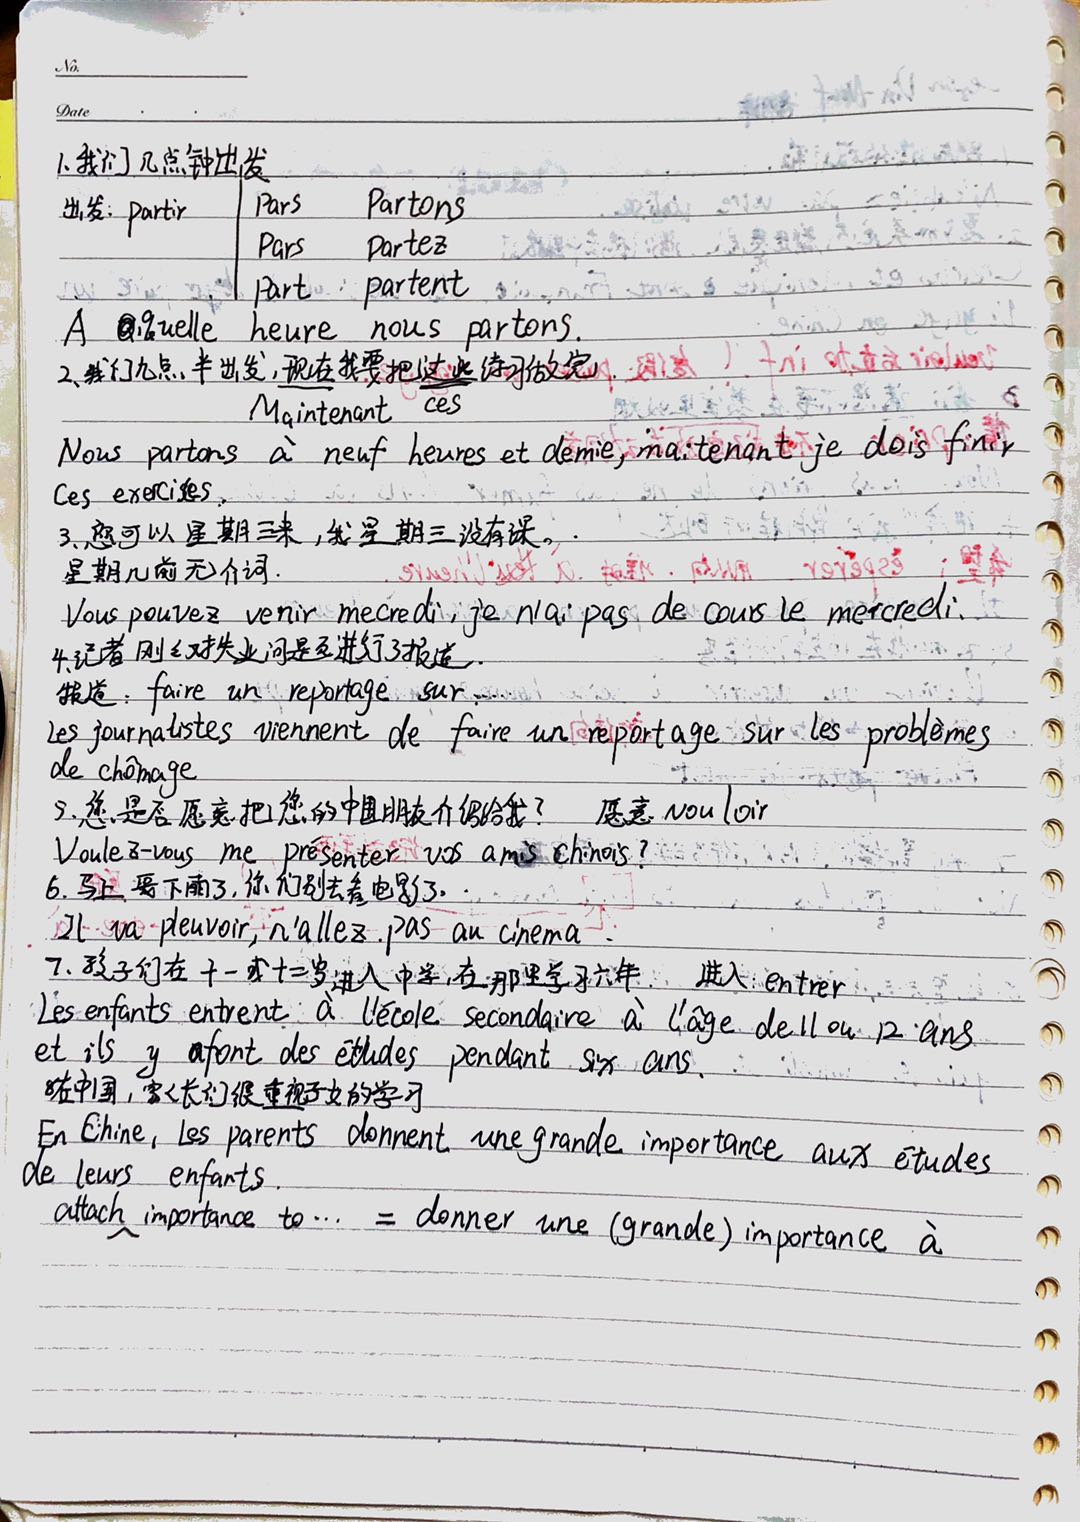 No.
Date
1.我们几点钟出发
出发: partir Pars Partons
Pars partez
Part partent
A quelle heure nous partons.
2.我们九点半出发,现在我要把这些练习做完
Maintenant ces
Nous partons à neuf heures et demie, maitenant je dois finir
ces exercises.
3.您可以星期三来,我星期三没有课。
星期几前无介词.
Vous pouvez venir mecredi, je n'ai pas de cours le mercredi.
4.记者刚刚对失业问题进行了报道.
报道: faire un reportage sur
Les journalistes viennent de faire un reportage sur les problèmes
de chômage
5.您是否愿意把您的中国朋友介绍给我? 愿意 vouloir
Voulez-vous me présenter vos amis chinois?
6.马上要下雨了,你们别去看电影了.
Il va pleuvoir, n'allez pas au cinema.
7.孩子们在十一或十二岁进入中学,在那里学习六年. 进入: entrer
Les enfants entrent à l'école secondaire à l'âge de 11 ou 12 ans
et ils y font des études pendant six ans.
8在中国,家长们很重视子女的学习
En Chine, Les parents donnent une grande importance aux études
de leurs enfants.
attach importance to... = donner une (grande) importance à